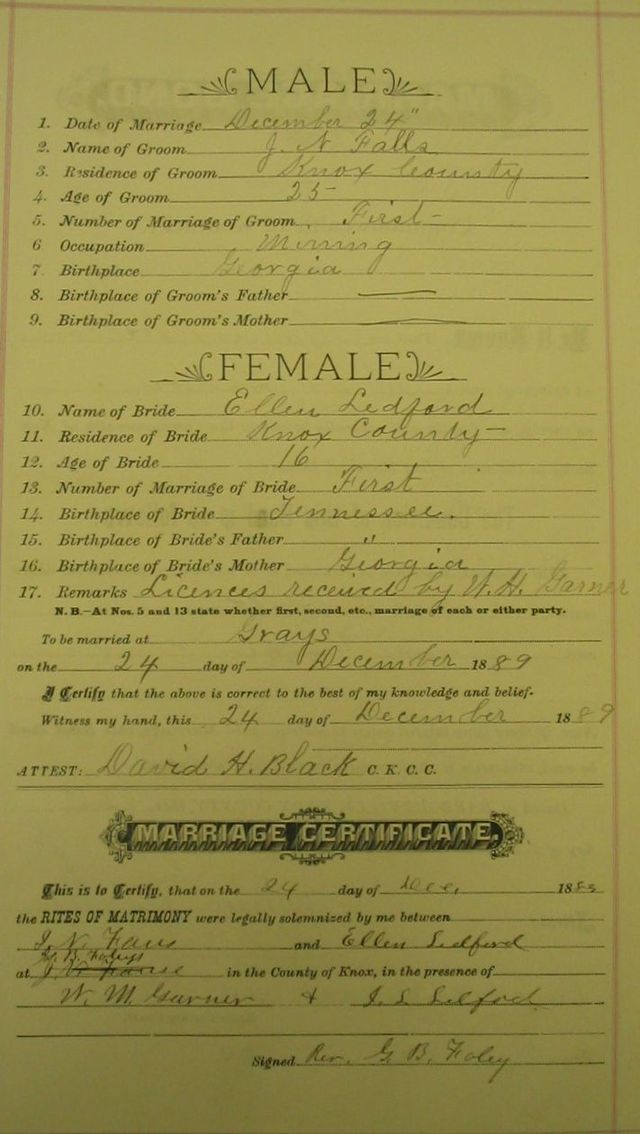 MALE
1. Date of Marriage December 24"
2. Name of Groom J. N Falls
3. Residence of Groom Knox County
4. Age of Groom 25
5. Number of Marriage of Groom First
6 Occupation Mining
7. Birthplace Georgia
8. Birthplace of Groom's Father
9. Birthplace of Groom's Mother
FEMALE
10. Name of Bride Ellen Ledford
11. Residence of Bride Knox County
12. Age of Bride 16
13. Number of Marriage of Bride First
14. Birthplace of Bride Tennessee.
15. Birthplace of Bride's Father "
16. Birthplace of Bride's Mother Georgia
17. Remarks Licences received by W. H. Garner
N. B.—At Nos. 5 and 13 state whether first, second, etc., marriage of each or either party.
To be married at Grays
on the 24 day of December 1889
I Certify that the above is correct to the best of my knowledge and belief.
Witness my hand, this 24 day of December 1889
ATTEST: David H. Black C. K. C. C.
MARRIAGE CERTIFICATE.
This is to Certify, that on the 24 day of Dec, 188
the RITES OF MATRIMONY were legally solemnized by me between
J. N. and Ellen Ledford
G. B. Foleys
at in the County of Knox, in the presence of
W. M. Garner &
Signed Rev. G. B. Foley